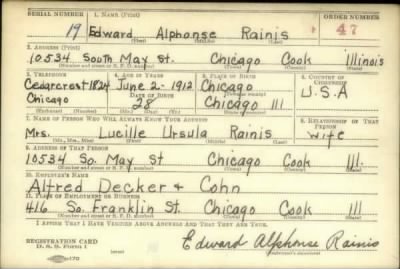 SERIAL NUMBER 1. NAME (Print) ORDER NUMBER
19 Edward Alphonse Rainis 47
(First) (Middle) (Last)
2. ADDRESS (Print)
10534 South May St. Chicago Cook Illinois
(Number and street or R. F. D. number) (Town) (County) (State)
3. TELEPHONE 4. AGE IN YEARS 5. PLACE OF BIRTH 6. COUNTRY OF CITIZENSHIP
Cedarcrest 1824 June 2-1912 Chicago
DATE OF BIRTH U.S.A
Chicago 28 Chicago Ill
(Exchange) (Number) (Mo.) (Day) (Yr.) (State or country)
7. NAME OF PERSON WHO WILL ALWAYS KNOW YOUR ADDRESS 8. RELATIONSHIP OF THAT PERSON
Mrs. Lucille Ursula Rainis wife
(Mr., Mrs., Miss) (First) (Middle) (Last)
9. ADDRESS OF THAT PERSON
10534 So. May St Chicago Cook Ill.
(Number and street or R. F. D. number) (Town) (County) (State)
10. EMPLOYER'S NAME
Alfred Decker & Cohn
11. PLACE OF EMPLOYMENT OR BUSINESS
416 So. Franklin St. Chicago Cook Ill
(Number and street or R. F. D. number) (Town) (County) (State)
I AFFIRM THAT I HAVE VERIFIED ABOVE ANSWERS AND THAT THEY ARE TRUE.
REGISTRATION CARD
D. S. S. FORM 1
Edward Alphonse Rainis
(Registrant's signature)